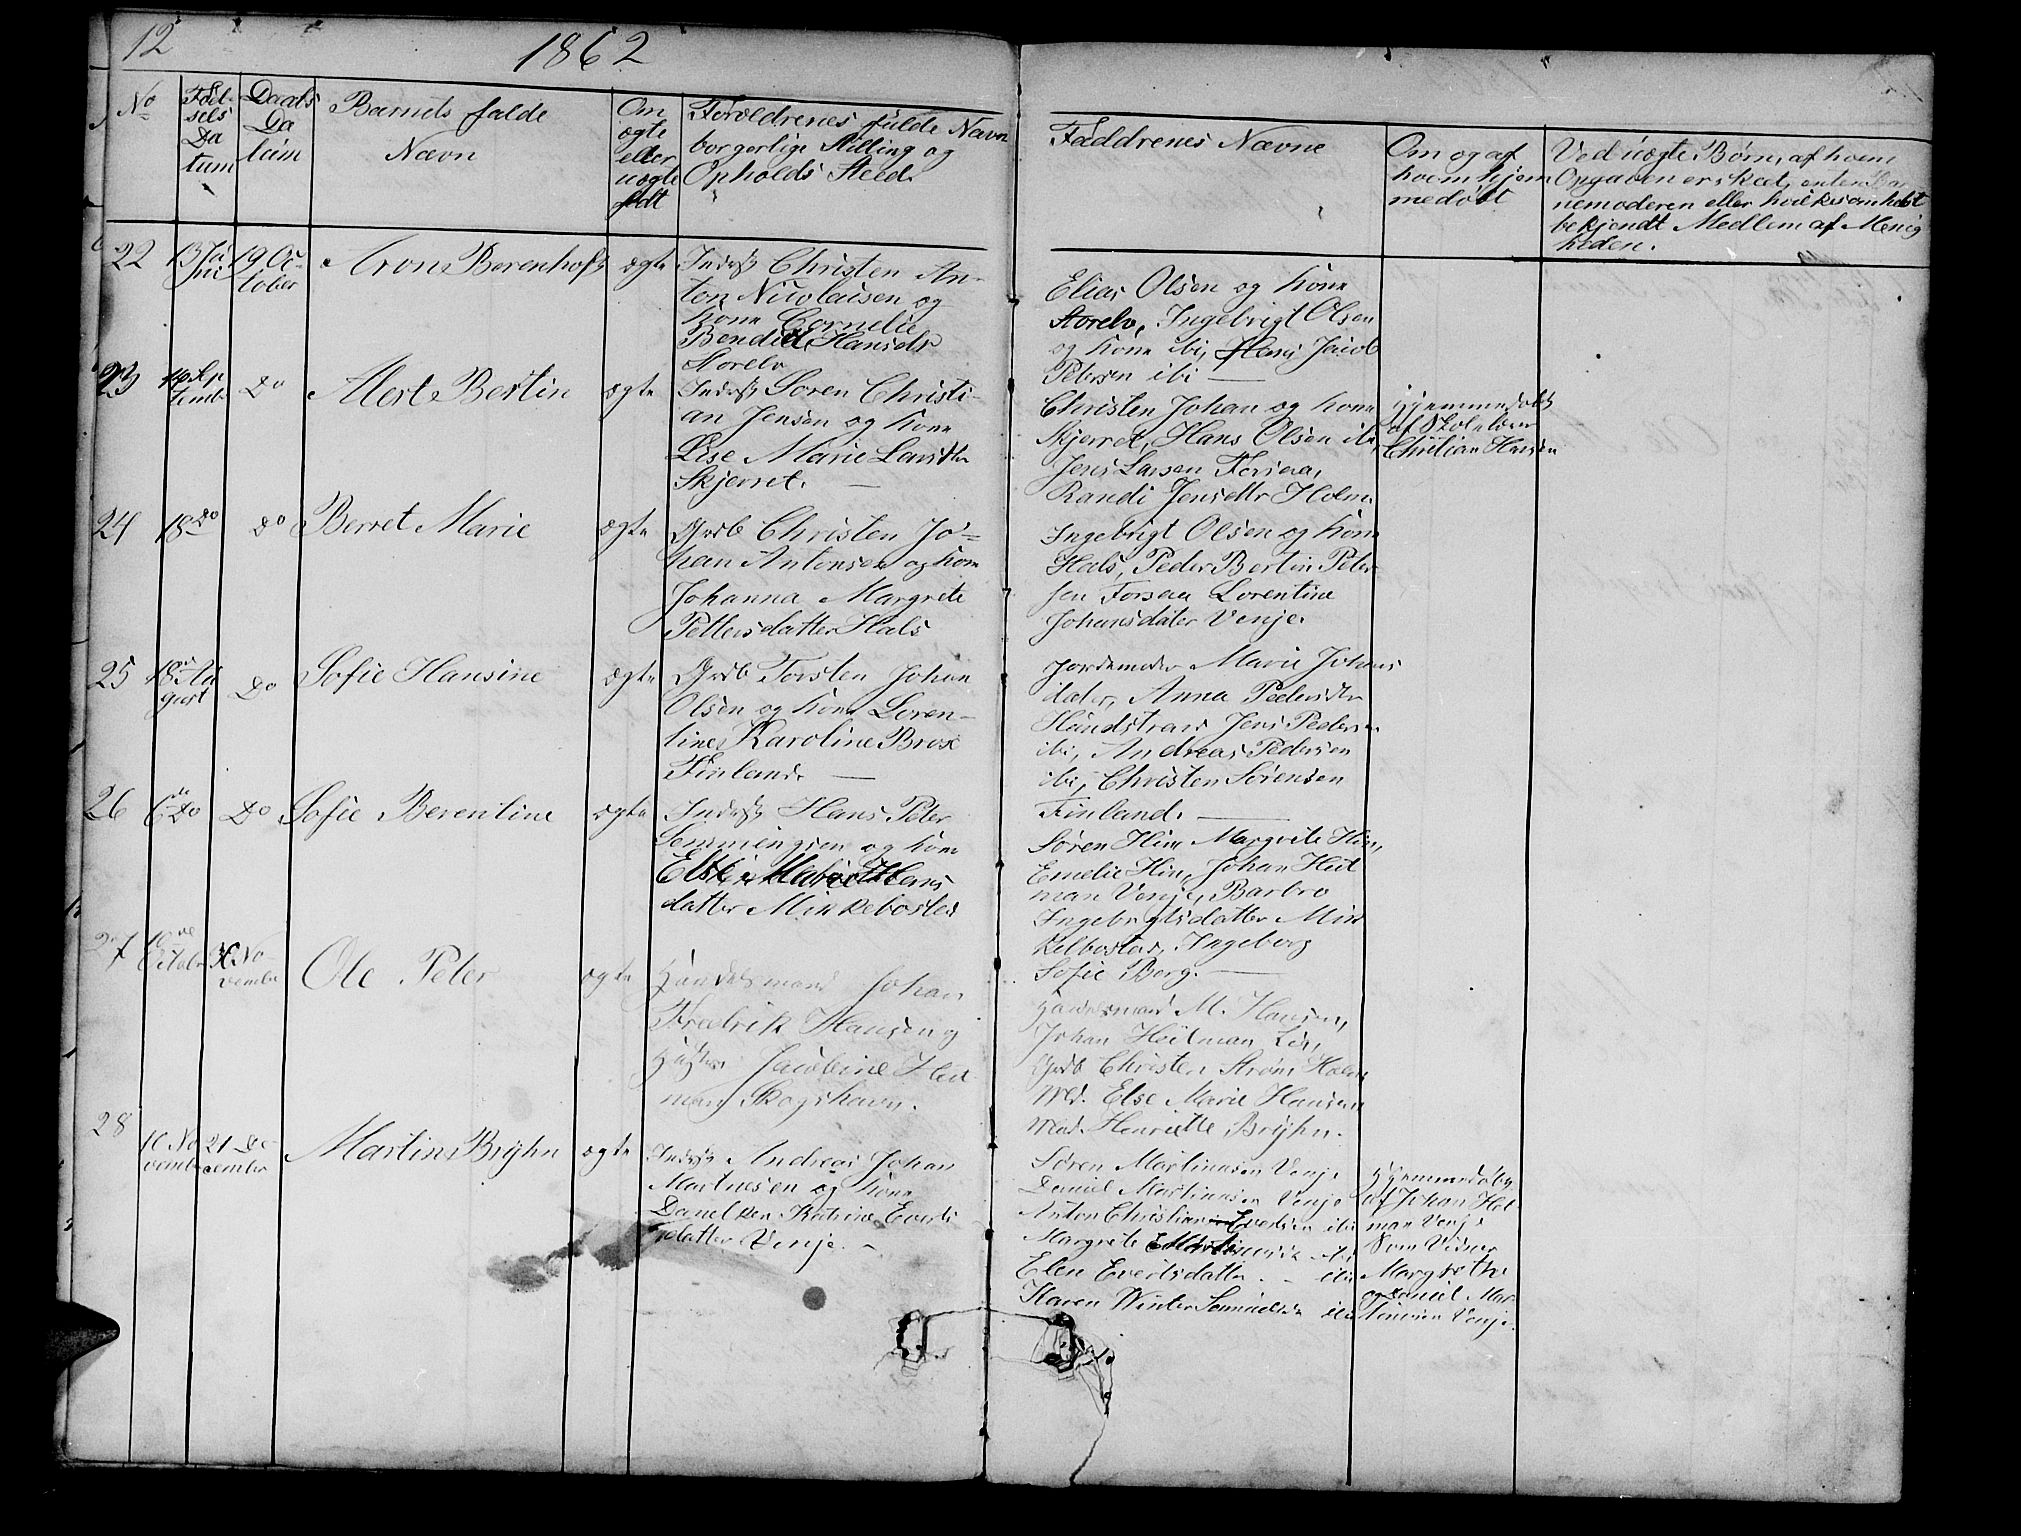 12
1862
No
Fød-
sels
Da
tum
Daabs
Da
tum
Barnets fulde
Navn
Om
ægte
eller
uægte
født
Forældrenes fulde Navn
borgerlige Stilling og
Opholds Sted.
Faddrenes Navne
Om og af
hvem hjem
medøbt
Ved uægte Børn, af hvem
Opgaven er skeet, enten Bar
nemoderen eller hvilkesomhelst
bekjendt Medlem af Menig
heden.
22
13 Ju
ni
19 Oc
tober
Aron Berenhoft
ægte
Inderst Christen An-
ton Nicolaisen og
Kone Cornelie
Bendict Hansdr
Storelv
Elias Olsen og Kone
Storelv, Ingebrigt Olsen
og Kone ibi, Hans Jacob
Petersen ibi —
23
Sep
tembr
Do
Mert Bertin
ægte
Inderst Soren Christi-
an Jensen og Kone
Lise Marie Larsdtr
Skjerret. —
Christen Johan og Kone
Skjerret, Hans Olsen ibi,
Jens Larsen Forsaa,
Randi Jensdtr Holm.
Hjemmedøbt
af Skolelærer
Christian Hansen
24
18 Do
Do
Berret Marie
ægte
Grdb Christen Jo-
han Antonsen og Kone
Johanna Margrete
Pettersdatter Hals
Ingebrigt Olsen og Kone
Hals, Peder Bertin Peter
sen Forsaa Lorentine
Johansdater Venje.
25
18 Au
gust
Do
Sofie Hansine
ægte
Grdb Torsten Johan
Olsen og Kone Loren-
tine Karoline Brox
Finland. —
Jordemoder Marie Johans
dater, Anna Pedersdtr
Hundstrand Jens Pedersen
ibi, Andreas Pedersen
ibi, Christen Sørensen
Finland. —
26
6 de Do
Do
Sofie Berentine
ægte
Inderst Hans Peter
Semmingsen og Kone
Else Marie Hans
datter Minkebosted
Søren Him, Margrete Him,
Emelie Him, Johan Heit
man Venje, Barbro
Ingebrgtsdatter Min
kelbostad, Ingeborg
Sofie Borg. —
27
10 de
October
No-
vember
Ole Peter
ægte
Handelsmand Johan
Fredrik Hansen og
Hustru Jacobine Heit
man Skogshavn.
Handelsmand M. Hansen,
Johan Heitman Lir,
Grdb Christen Strøm Holm
Md. Else Marie Hansen
Mad. Henriette Bryhn.
28
10 No
vember
21 De-
cember
Martin Bryhn
ægte
Inderst Andreas Johan
Martinesen og Kone
Danelken Katrine Everts
datter Venje. -
Søren Martinusen Venje
Daniel Martinusen Venje
Anton Christian Evertsen ibi
Margrete ibi
Elen Evertsdatter - ibi
Karen Winter Samuelsdr ibi
Hjemmedøbt
af Johan Heit
man Venje
Som Vidner
Margrethe
og Daniel Mar-
tinusen Venje.